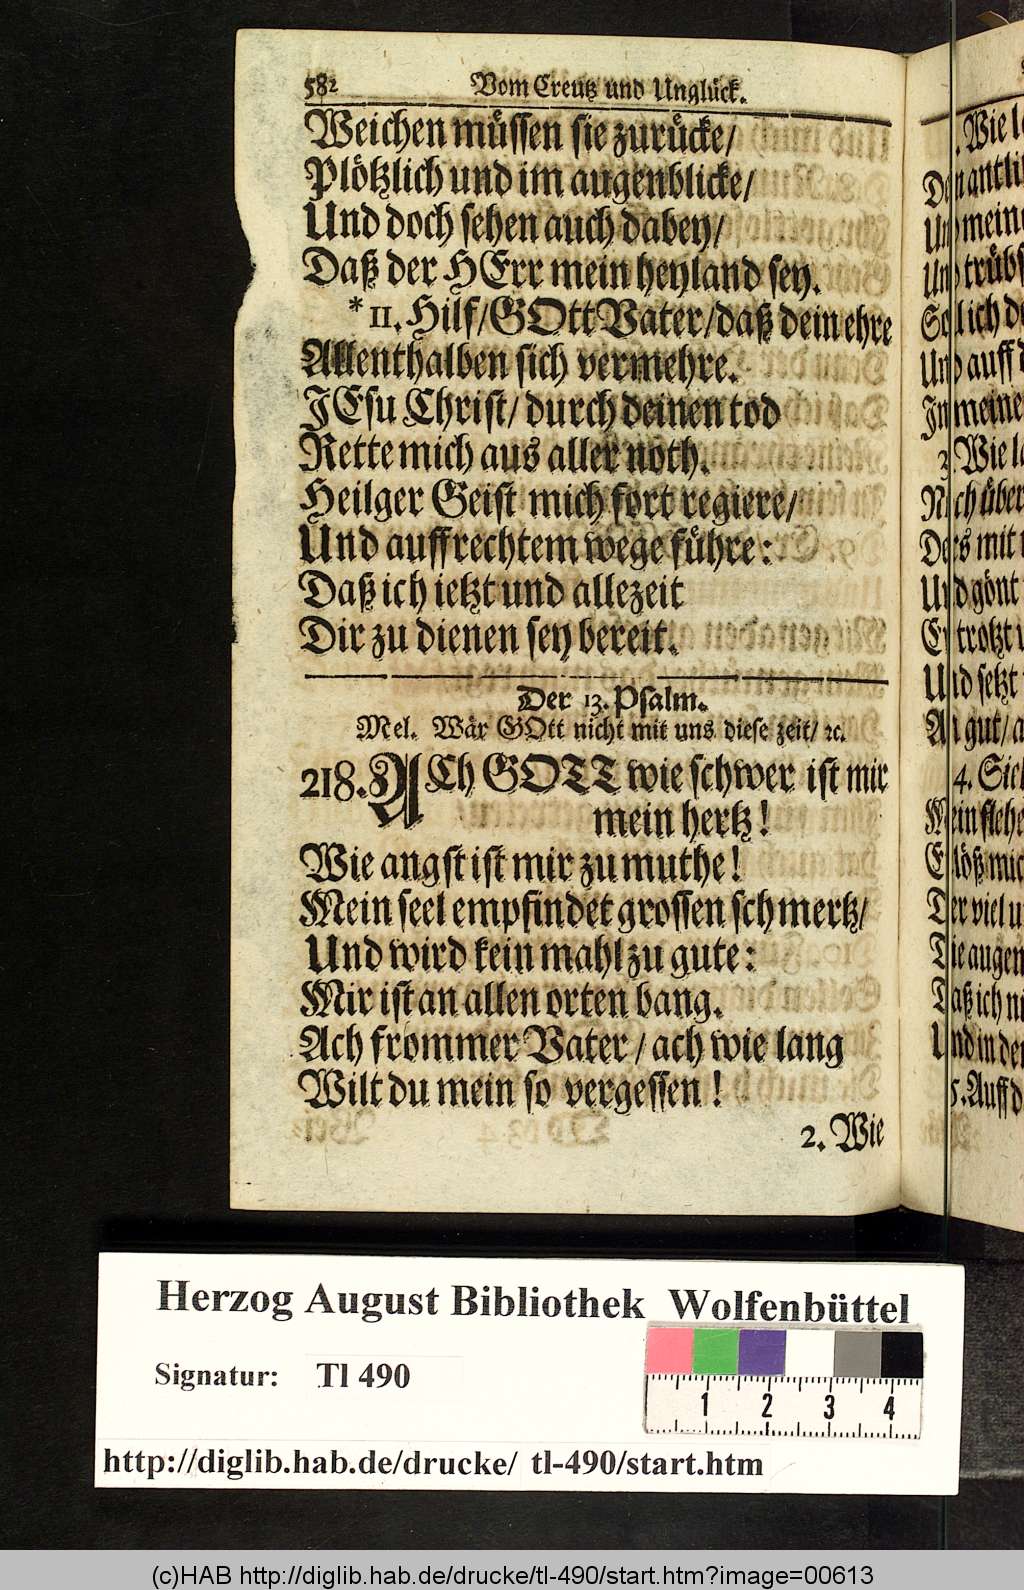 582 Vom Creutz und Unglück.
Weichen müssen sie zurücke/
Plötzlich und im augenblicke/
Und doch sehen auch dabey/
Daß der HErr mein heyland sey.
* 11. Hilf/GOtt Vater/daß dein ehre
Allenthalben sich vermehre.
JEsu Christ/ durch deinen tod
Rette mich aus aller noth.
Heilger Geist mich fort regiere/
Und auff rechtem wege führe:
Daß ich ietzt und allezeit
Dir zu dienen sey bereit.
Der 13. Psalm.
Mel. Wär GOtt nicht mit uns diese zeit/ ꝛc.
218. ACh GOTT wie schwer ist mir
mein hertz!
Wie angst ist mir zu muthe!
Mein seel empfindet grossen schmertz/
Und wird kein mahl zu gute:
Mir ist an allen orten bang.
Ach frommer Vater/ ach wie lang
Wilt du mein so vergessen!
2. Wie
. Wie
meine
Und auff
meine
Wie
Nach über
mit
Und gönt
trotzt
Und setzt
gut/
4. Sich
Mein flehe
Der viel
Die augen
Daß ich
Und in
5. Auff
Herzog August Bibliothek Wolfenbüttel
Signatur: Tl 490
1 2 3 4
http://diglib.hab.de/drucke/ tl-490/start.htm
(c)HAB http://diglib.hab.de/drucke/tl-490/start.htm?image=00613